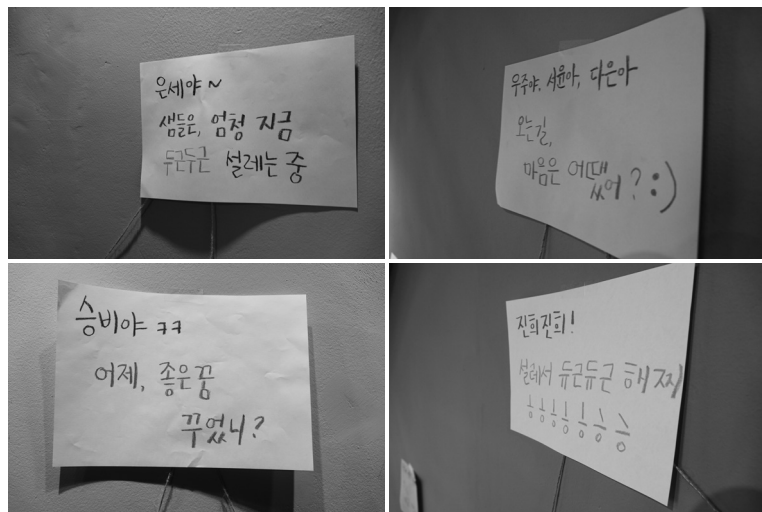 은세야~
샘들은, 엄청 지금
두근두근 설레는 중
우주야, 서윤아, 다은아
오는길,
마음은 어땠어? :)
승비야 ㅋㅋ
어제, 좋은꿈
꾸었니?
진희진희!
설레서 듀근듀근 해찌
응응응응응응응